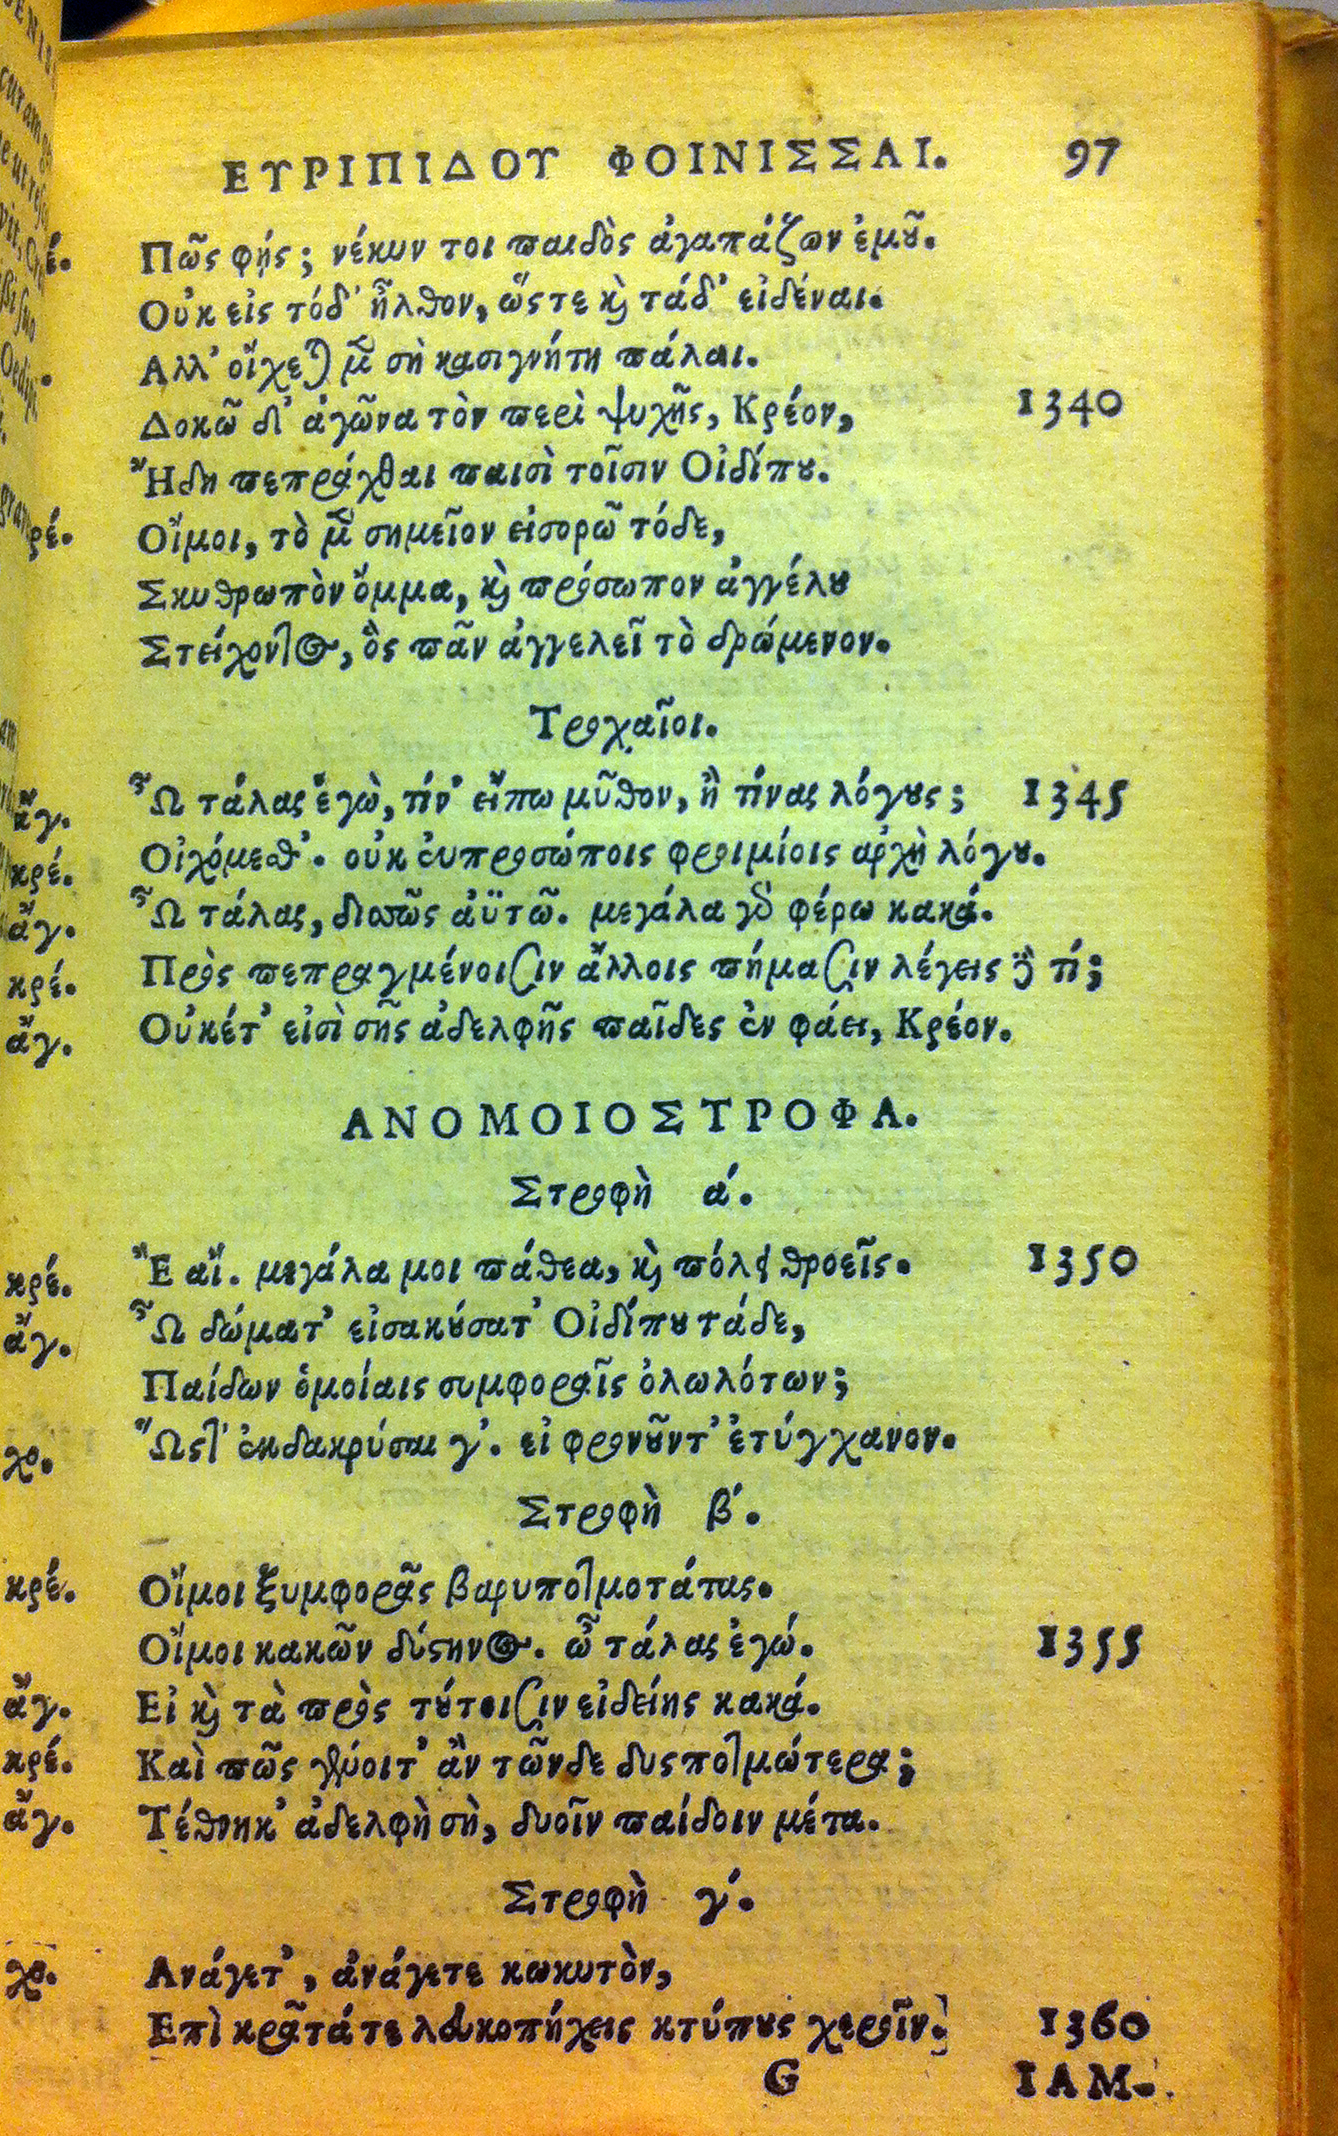 ΕΥΡΙΠΙΔΟΥ ΦΟΙΝΙΣΣΑΙ. 97
έ. Πῶς φής; νέκυν τοι παιδὸς ἀγαπάζων ἐμοῦ.
Οὐκ εἰς τόδ' ἦλθον, ὥςτε καὶ τάδ' εἰδέναι.
Αλλ' οἴχεται μὲν σὴ κασιγνήτη πάλαι.
Δοκῶ δ' ἀγῶνα τὸν περὶ ψυχῆς, Κρέον, 1340
Ἤδη πεπράχθαι παισὶ τοῖσιν Οἰδίπου.
ρέ. Οἴμοι, τὸ μὲν σημεῖον εἰσορῶ τόδε,
Σκυθρωπὸν ὄμμα, καὶ πρόσωπον ἀγγέλου
Στείχοντος, ὃς πᾶν ἀγγελεῖ τὸ δρώμενον.
Τροχαῖοι.
ἄγ. Ὦ τάλας ἐγὼ, τίν' εἴπω μῦθον, ἢ τίνας λόγους; 1345
κρέ. Οἰχόμεθ'. οὐκ εὐπροσώποις φροιμίοις ἀρχὴ λόγου.
ἄγ. Ὦ τάλας, δισσῶς ἀϋτῶ. μεγάλα γὰρ φέρω κακά.
κρέ. Πρὸς πεπραγμένοισιν ἄλλοις πήμασιν λέγεις δὲ τί;
ἄγ. Οὐκέτ' εἰσὶ σῆς ἀδελφῆς παῖδες ἐν φάει, Κρέον.
ΑΝΟΜΟΙΟΣΤΡΟΦΑ.
Στροφὴ ά.
κρέ. Ἒ αἴ. μεγάλα μοι πάθεα, καὶ πόλει θροεῖς. 1350
ἄγ. Ὦ δώματ' εἰσακούσατ' Οἰδίπου τάδε,
Παίδων ὁμοίαις συμφοραῖς ὀλωλότων;
χο. Ὥστ' ἐκδακρύσαι γ'. εἰ φρονοῦντ' ἐτύγχανον.
Στροφὴ β΄.
κρέ. Οἴμοι ξυμφορᾶς βαρυποτμοτάτας.
Οἴμοι κακῶν δύστηνος. ὦ τάλας ἐγώ. 1355
ἄγ. Εἰ καὶ τὰ πρὸς τούτοισιν εἰδείης κακά.
κρέ. Καὶ πῶς γένοιτ' ἂν τῶνδε δυςποτμώτερα;
ἄγ. Τέθνηκ' ἀδελφὴ σὴ, δυοῖν παίδοιν μέτα.
Στροφὴ γ΄.
χο. Ανάγετ', ἀνάγετε κωκυτὸν,
Επὶ κρᾶτά τε λευκοπήχεις κτύπους χεροῖν. 1360
G ΙΑΜ.